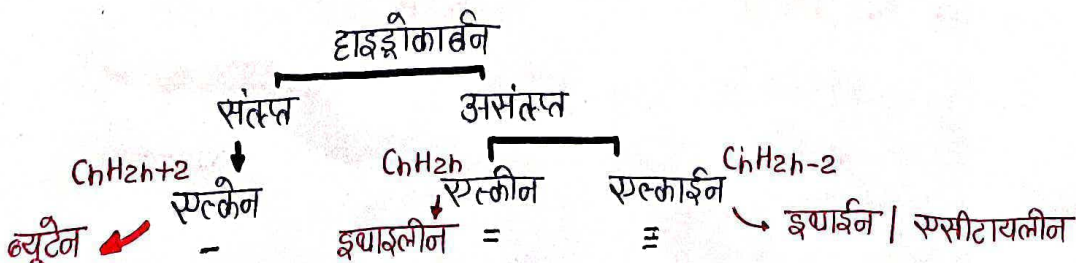 हाइड्रोकार्बन
संतृप्त असंतृप्त
CnH2n+2 CnH2n CnH2n-2
एल्केन एल्कीन एल्काईन
ब्युटेन - इथाइलीन = ≡ इथाईन / एसीटायलीन